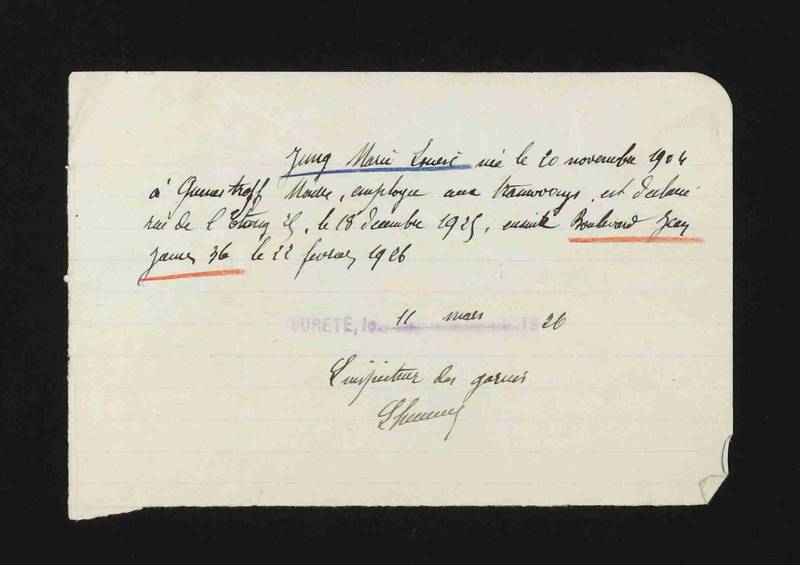 Jung Marie Louise née le 20 novembre 1904
à Moselle, employée aux tramways, est déclarée
rue de l'Etang 25, le 18 décembre 1925, ensuite Boulevard Jean
Jaures 36 le 22 fevrier 1926
SURETÉ, le 11 mars 1926
L'inspecteur des garnis